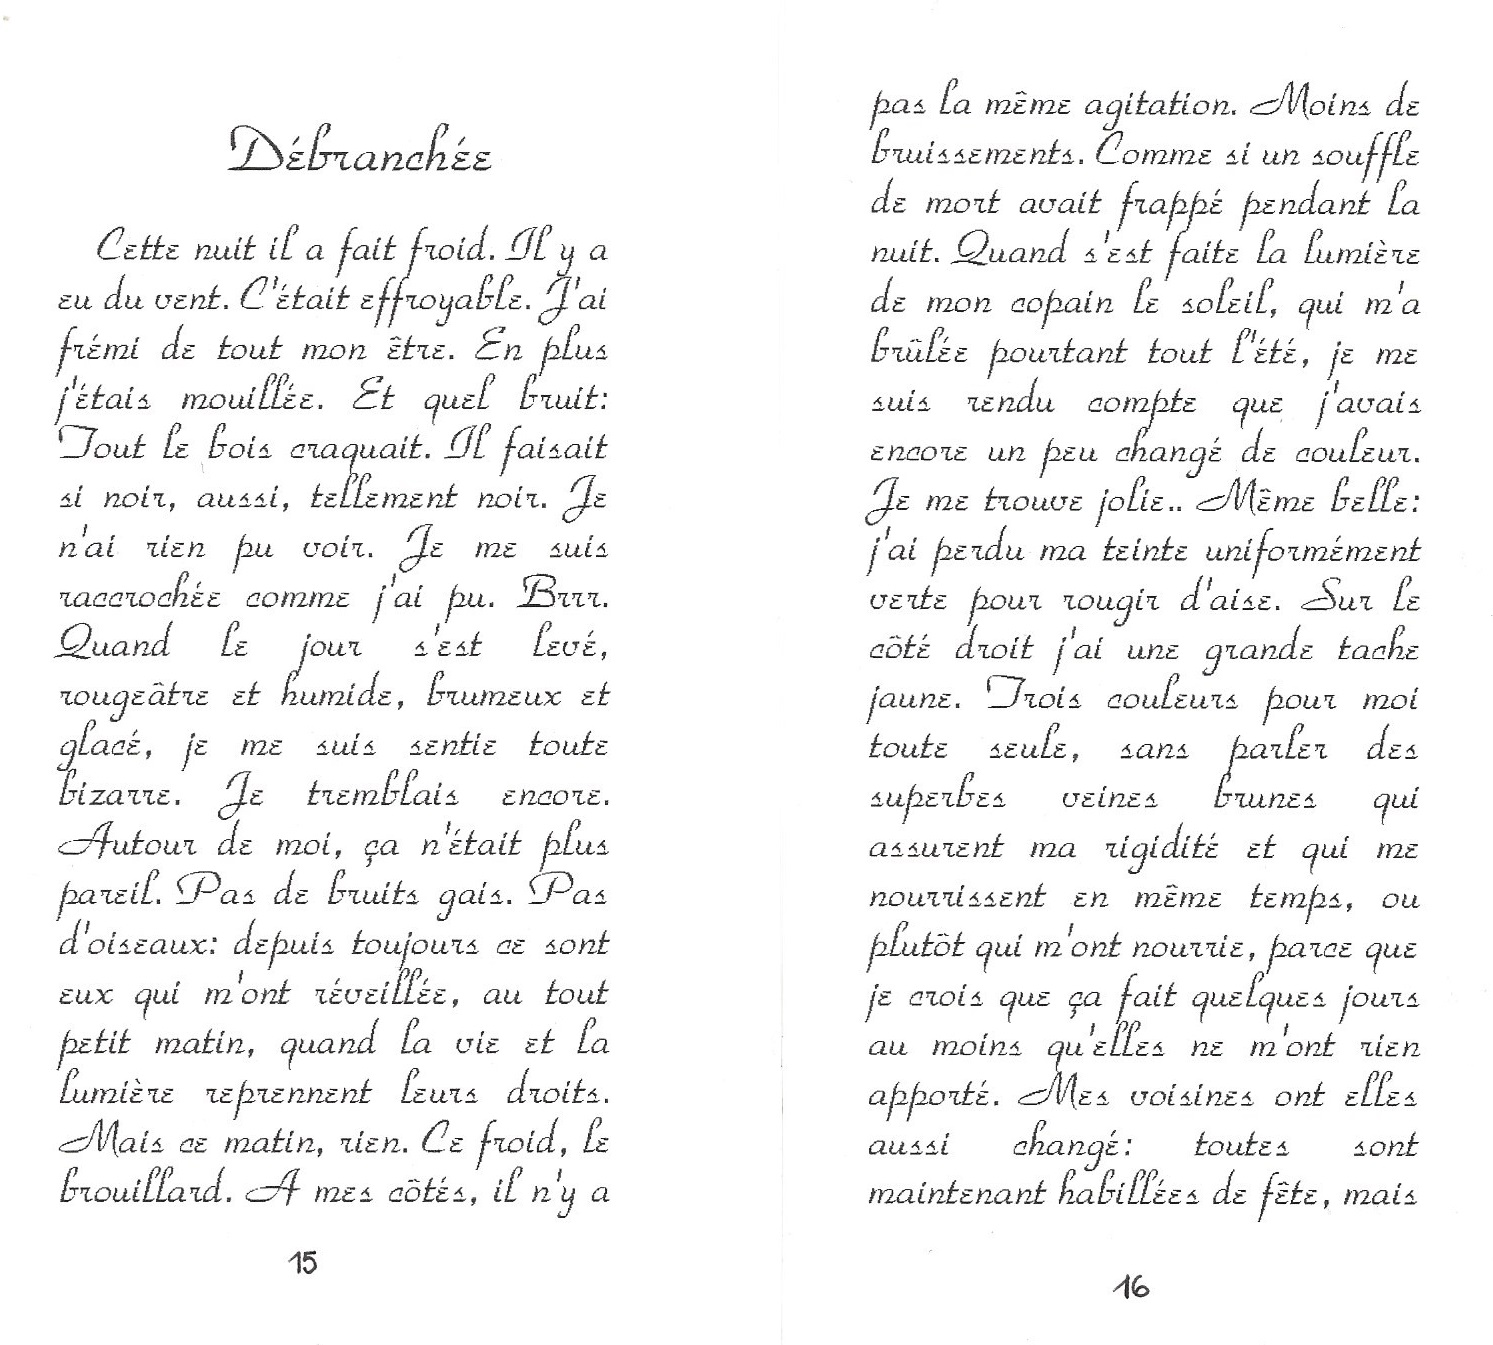 Débranchée
Cette nuit il a fait froid. Il y a
eu du vent. C'était effroyable. J'ai
frémi de tout mon être. En plus
j'étais mouillée. Et quel bruit:
Tout le bois craquait. Il faisait
si noir, aussi, tellement noir. Je
n'ai rien pu voir. Je me suis
raccrochée comme j'ai pu. Brrr.
Quand le jour s'est levé,
rougeâtre et humide, brumeux et
glacé, je me suis sentie toute
bizarre. Je tremblais encore.
Autour de moi, ça n'était plus
pareil. Pas de bruits gais. Pas
d'oiseaux: depuis toujours ce sont
eux qui m'ont réveillée, au tout
petit matin, quand la vie et la
lumière reprennent leurs droits.
Mais ce matin, rien. Ce froid, le
brouillard. A mes côtés, il n'y a
15
pas la même agitation. Moins de
bruissements. Comme si un souffle
de mort avait frappé pendant la
nuit. Quand s'est faite la lumière
de mon copain le soleil, qui m'a
brûlée pourtant tout l'été, je me
suis rendu compte que j'avais
encore un peu changé de couleur.
Je me trouve jolie.. Même belle:
j'ai perdu ma teinte uniformément
verte pour rougir d'aise. Sur le
côté droit j'ai une grande tache
jaune. Trois couleurs pour moi
toute seule, sans parler des
superbes veines brunes qui
assurent ma rigidité et qui me
nourrissent en même temps, ou
plutôt qui m'ont nourrie, parce que
je crois que ça fait quelques jours
au moins qu'elles ne m'ont rien
apporté. Mes voisines ont elles
aussi changé: toutes sont
maintenant habillées de fête, mais
16